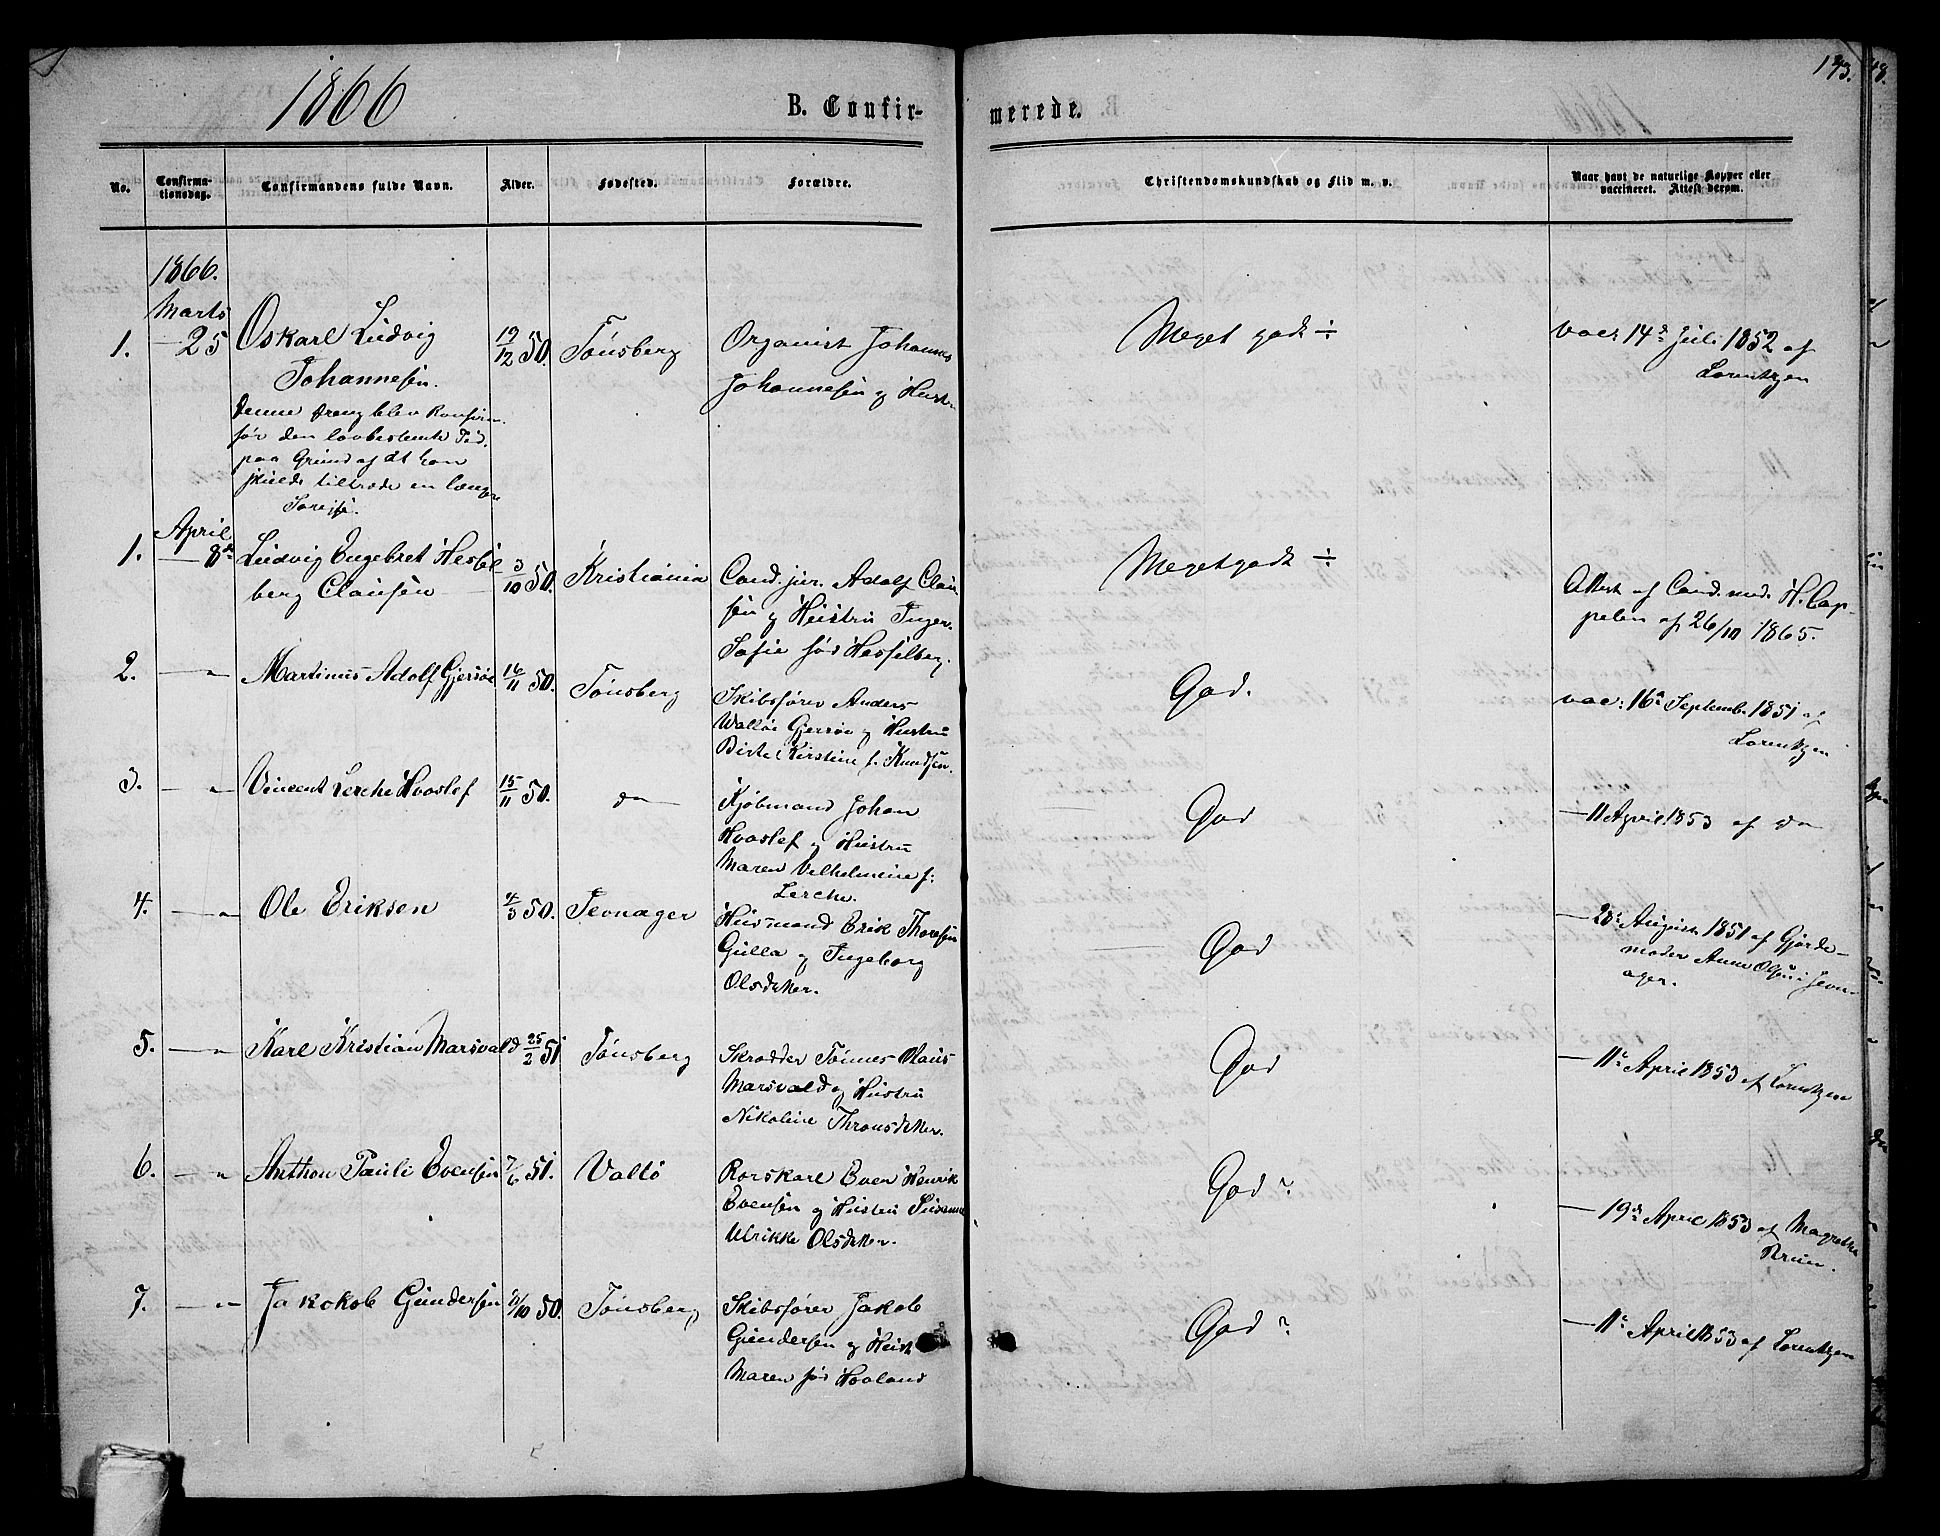 1866
B. Confir-
merede.
143.
No.
Confirma-
tionsdag.
Confirmandens fulde Navn.
Alder.
Fødested.
Forældre.
Christendomskundskab og Flid m. v.
Naar havt de naturlige Kopper eller
vaccineret. Attest derom.
1866.
Marts
1. 25 Oskarl Ludvig 19/12 50. Tönsberg Organist Johannes Meget godt ÷ vac: 14de Juli 1852 af
Johannesen. Johannesen og Hustr Lorentzen
Denne Dreng blev Konfirm.
før den lovbestemte Tid,
paa Grund af at han
skulde tiltræde en længre
Søreise.
April
1. 8de Ludvig Engebret Hessel 3/10 50. Kristiania Cand. jur. Adolf Clau Meget godt ÷
berg Clausen sen og Hustru Inger Attest af Cand. med. H. Cap-
Sofie fød Hesselberg. pelen af 26/10 1865.
2. — " Martinus Adolf Gjersøe 16/11 50. Tönsberg Skibsfører Anders God. vac: 16de Septemb. 1851 af
Walløe Gjersøe og Hustru Lorentzen
Birte Kirstine f. Knudsen.
3. — " Vincent Lerche Hvoslef 15/11 50. do Kjøbmand Johan God — 11 April 1853 af do
Hvoslef og Hustru
Maren Vilhelmine f:
Lerche.
4. — " Ole Eriksen 4/3 50. Jevnager Husmand Erik Thoresen God — 28de August 1851 af Gjorde-
Gulla og Ingeborg moder Anne Olsen i Jevn-
Olsdatter. ager.
5. — " Karl Kristian Marsvald 25/2 51 Tönsberg Skrædder Tönnes Claus God — 11te April 1853 af Lorentzen
Marsvald og Hustru
Nikoline Thronsdatter.
6. — " Anthon Pauli Evensen 7/6 51. Vallö Rorskarl Even Henrik God ? — 19de April 1853 af Magrethe
Evensen og Hustru Susanne Bruun.
Ulrikke Olsdatter.
7. — " Jakokob Gundersen /10 50. Tönsberg Skibsfører Jakob God ? — 11te April 1853 af Lorentzen
Gundersen og Hust
Maren fød Hovland